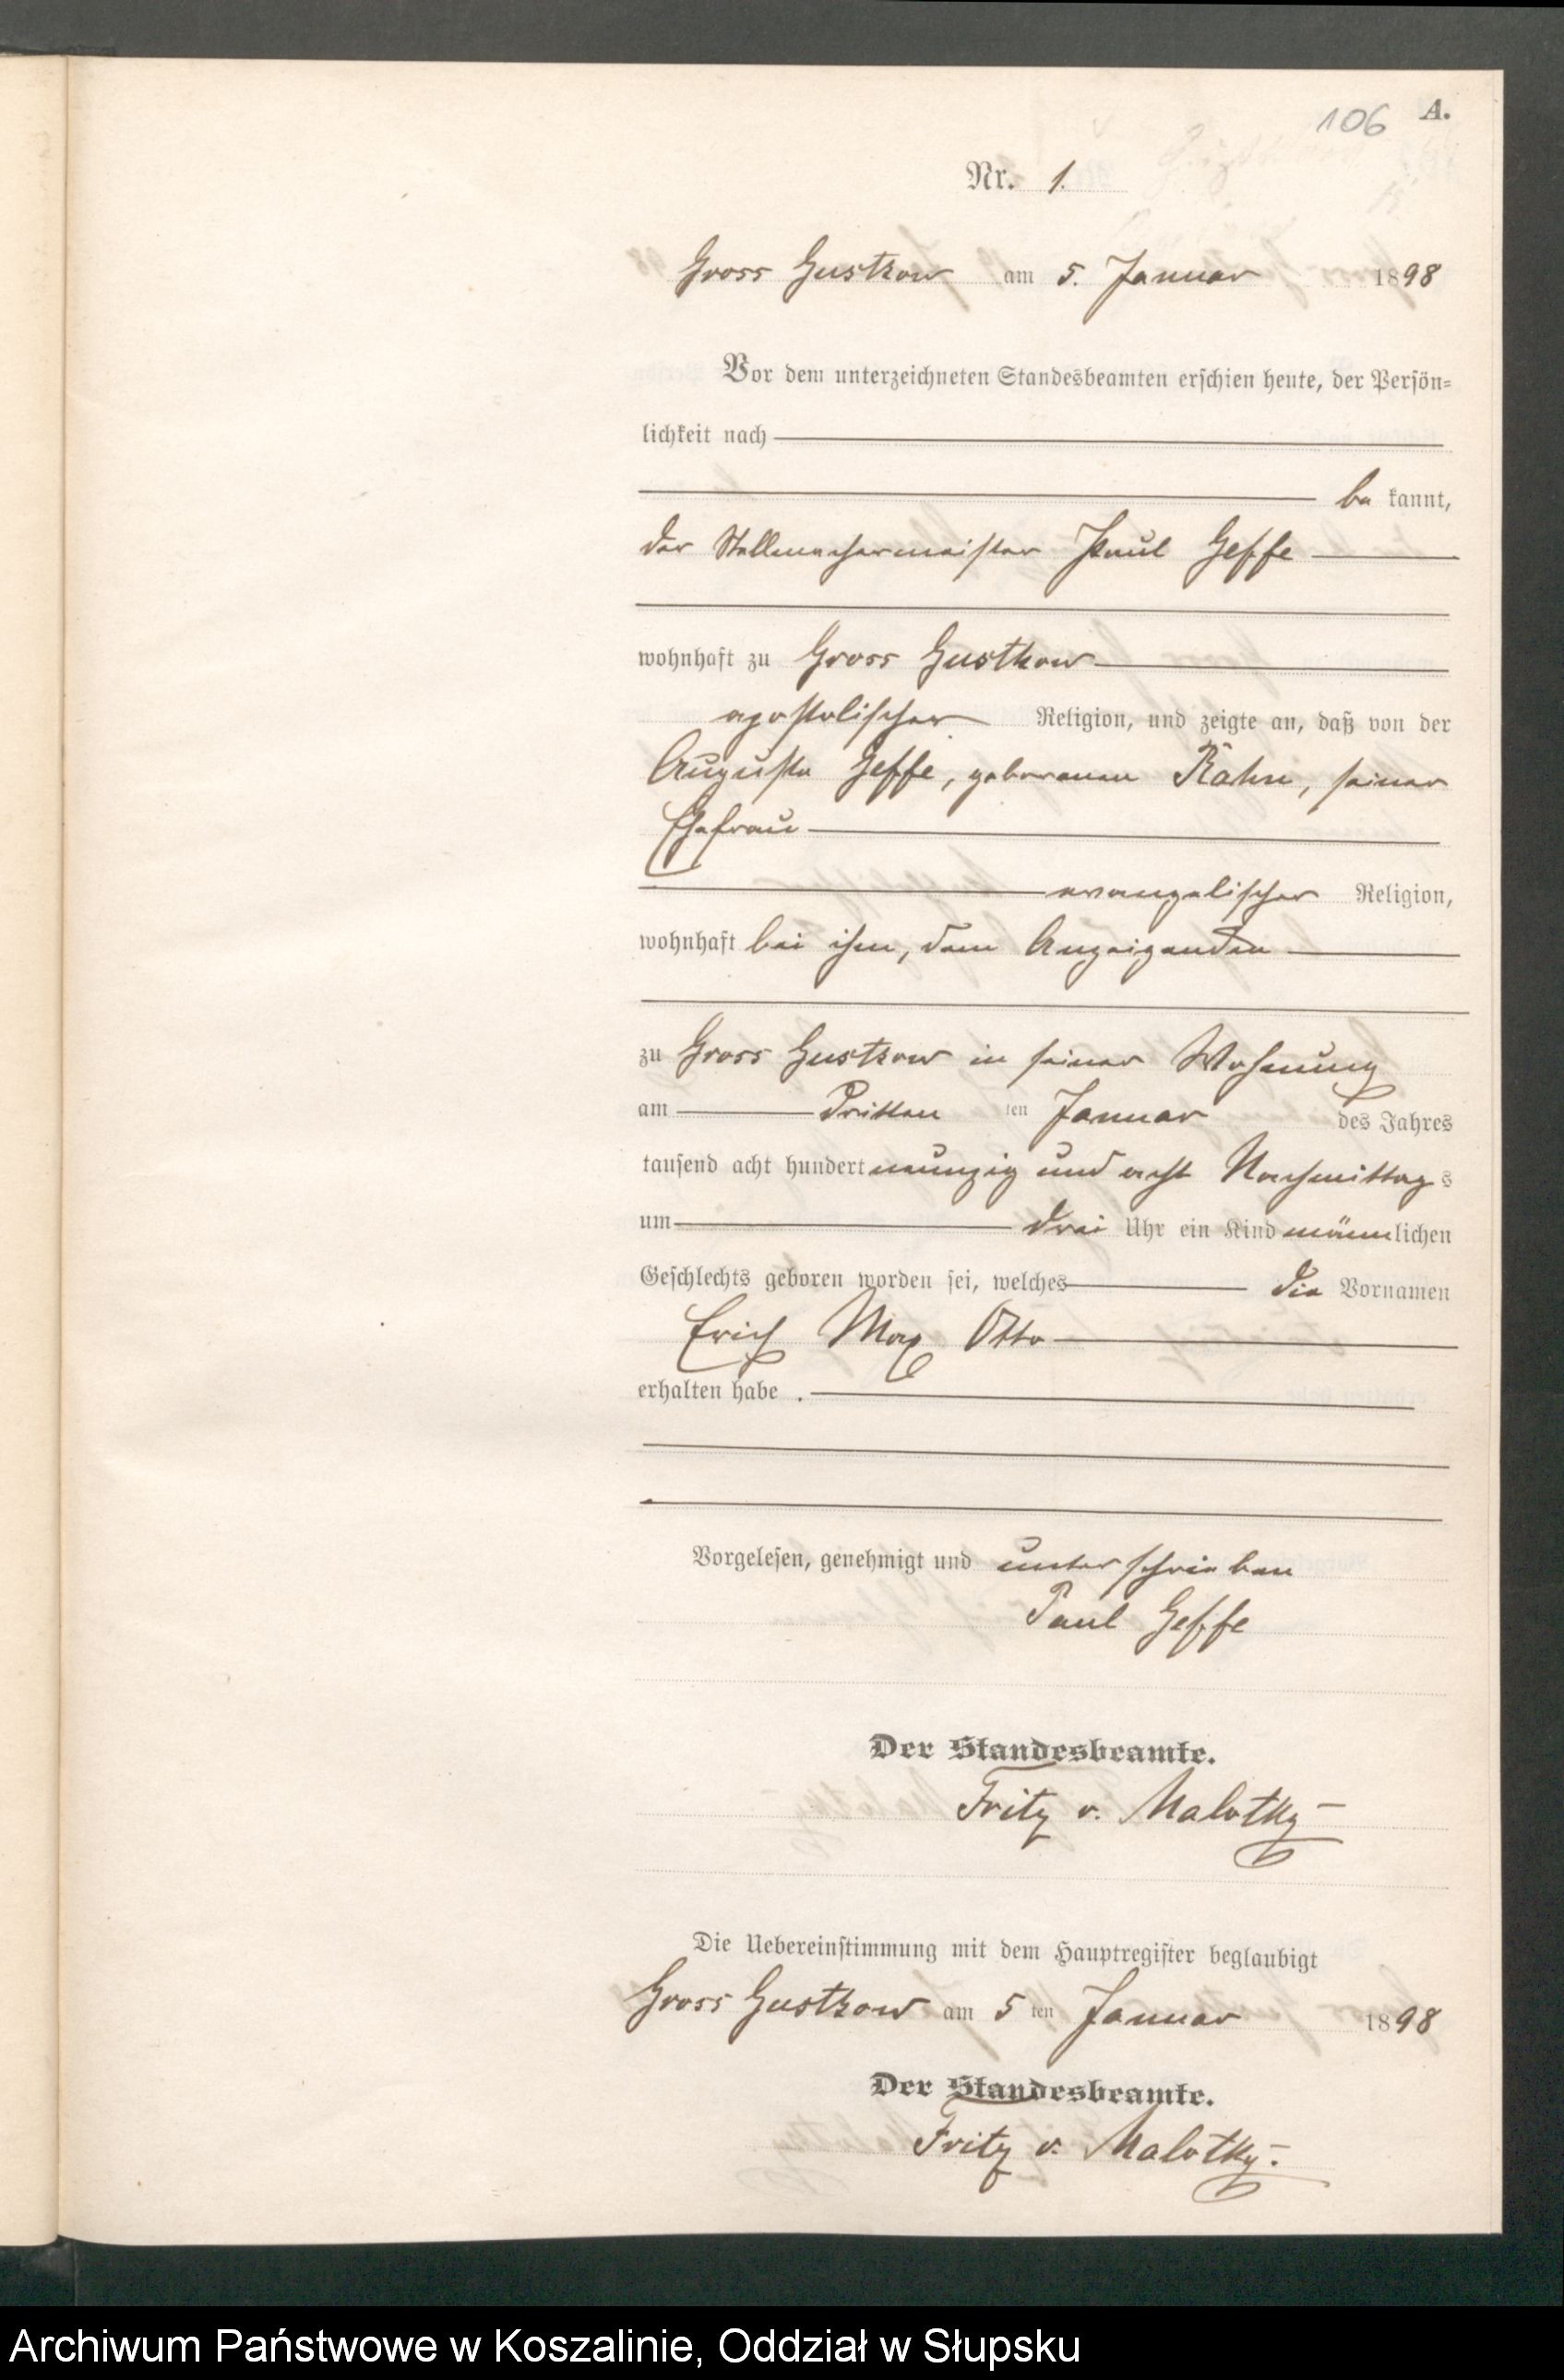 106 A.
Nr. 1.
Gross Gustkow am 5. Januar 1898
Vor dem unterzeichneten Standesbeamten erschien heute, der Persön=
lichkeit nach
be kannt,
der Stellmachermeister Paul Geffe
wohnhaft zu Gross Gustkow
apostolischer Religion, und zeigte an, daß von der
Auguste Geffe, geborenen Rahn, seiner
Ehefrau
evangelischer Religion,
wohnhaft bei ihm, dem Anzeigenden
zu Gross Gustkow in seiner Wohnung
am Dritten ten Januar des Jahres
tausend acht hundert neunzig und acht Nachmittag s
um drei Uhr ein Kind männlichen
Geschlechts geboren worden sei, welches die Vornamen
Erich Max Otto
erhalten habe .
Vorgelesen, genehmigt und unterschrieben
Paul Geffe
Der Standesbeamte.
Fritz v. Malotky
Die Uebereinstimmung mit dem Hauptregister beglaubigt
Gross Gustkow am 5 ten Januar 1898
Der Standesbeamte.
Fritz v. Malotky.
Archiwum Państwowe w Koszalinie, Oddział w Słupsku